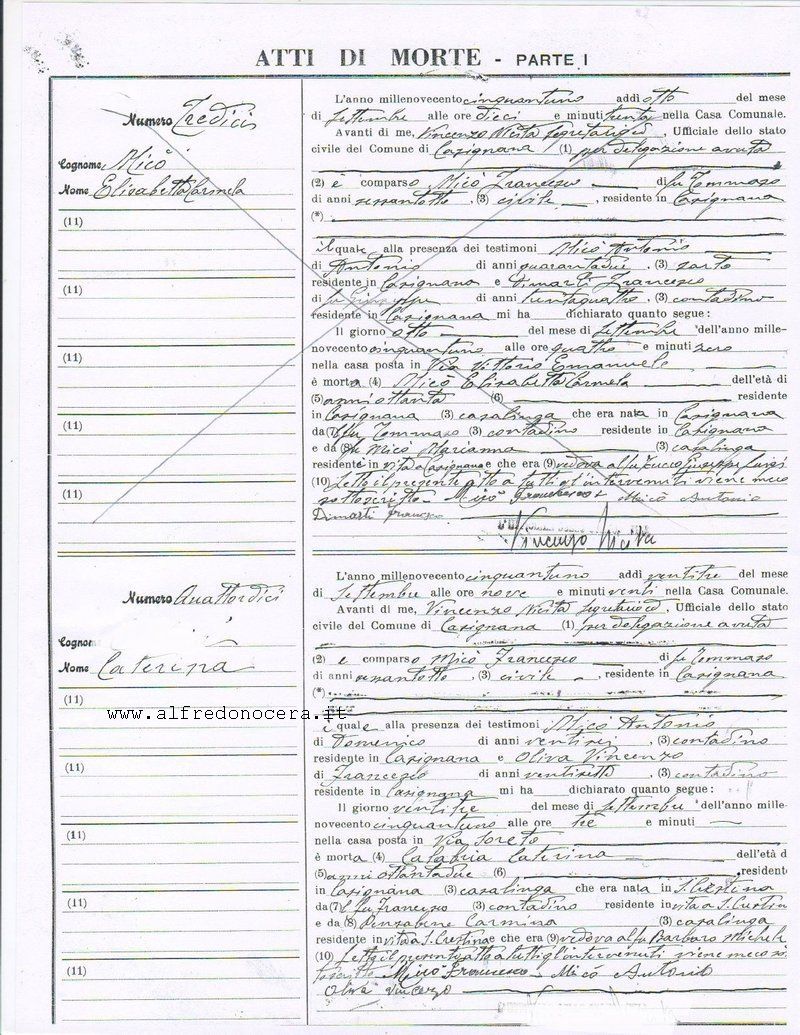 ATTI DI MORTE - PARTE I
Numero Tredici
Cognome Micò
Nome Elisabetta Carmela
(11)
(11)
(11)
(11)
(11)
L'anno millenovecento cinquantuno addì otto del mese
di settembre alle ore dieci e minuti trenta nella Casa Comunale.
Avanti di me, Vincenzo Nicita segretario, Ufficiale dello stato
civile del Comune di Casignana (1) per delegazione avuta
(2) è comparso Micò Francesco di fu Tommaso
di anni sessantotto, (3) civile, residente in Casignana
(*)
il quale alla presenza dei testimoni Micò Antonio
di Antonio di anni quarantadue, (3) sarto
residente in Casignana e Dimarti Francesco
di fu Giuseppe di anni trentaquattro, (3) contadino
residente in Casignana mi ha dichiarato quanto segue:
Il giorno otto del mese di settembre dell'anno mille-
novecento cinquantuno alle ore quattro e minuti zero
nella casa posta in Via Vittorio Emanuele
è morta (4) Micò Elisabetta Carmela dell'età di
(5) anni ottanta (6) residente
in Casignana (3) casalinga che era nata in Casignana
da (7) fu Tommaso (3) contadino residente in Casignana
e da (8) fu Micò Marianna (3) casalinga
residente in vita a Casignana e che era (9) vedova al fu Giuseppe Luigi
(10) Letto il presente atto a tutti gl'intervenuti viene meco
sottoscritto. Micò Francesco Micò Antonio
Dimarti Francesco
Vincenzo Nicita
Numero Quattordici
Cognome
Nome Caterina
(11)
(11)
(11)
(11)
(11)
www.alfredonocera.it
L'anno millenovecento cinquantuno addì ventitre del mese
di settembre alle ore nove e minuti venti nella Casa Comunale.
Avanti di me, Vincenzo Nicita segretario, Ufficiale dello stato
civile del Comune di Casignana (1) per delegazione avuta
(2) è comparso Micò Francesco di fu Tommaso
di anni sessantotto, (3) civile, residente in Casignana
(*)
il quale alla presenza dei testimoni Micò Antonio
di Domenico di anni ventisei, (3) contadino
residente in Casignana e Oliva Vincenzo
di Francesco di anni ventisette, (3) contadino
residente in Casignana mi ha dichiarato quanto segue:
Il giorno ventitre del mese di settembre dell'anno mille-
novecento cinquantuno alle ore tre e minuti
nella casa posta in Via Loreto
è morta (4) Calabria Caterina dell'età d
(5) anni ottantadue (6) resident
in Casignana (3) casalinga che era nata in S. Cristina
da (7) fu Francesco (3) contadino residente in vita a S. Cristina
e da (8) Pensabene Carmina (3) casalinga
residente in vita a S. Cristina e che era (9) vedova al fu Barbaro Michele
(10) Letto il presente atto a tutti gl'intervenuti viene meco
Micò Francesco - Micò Antonio
Oliva Vincenzo